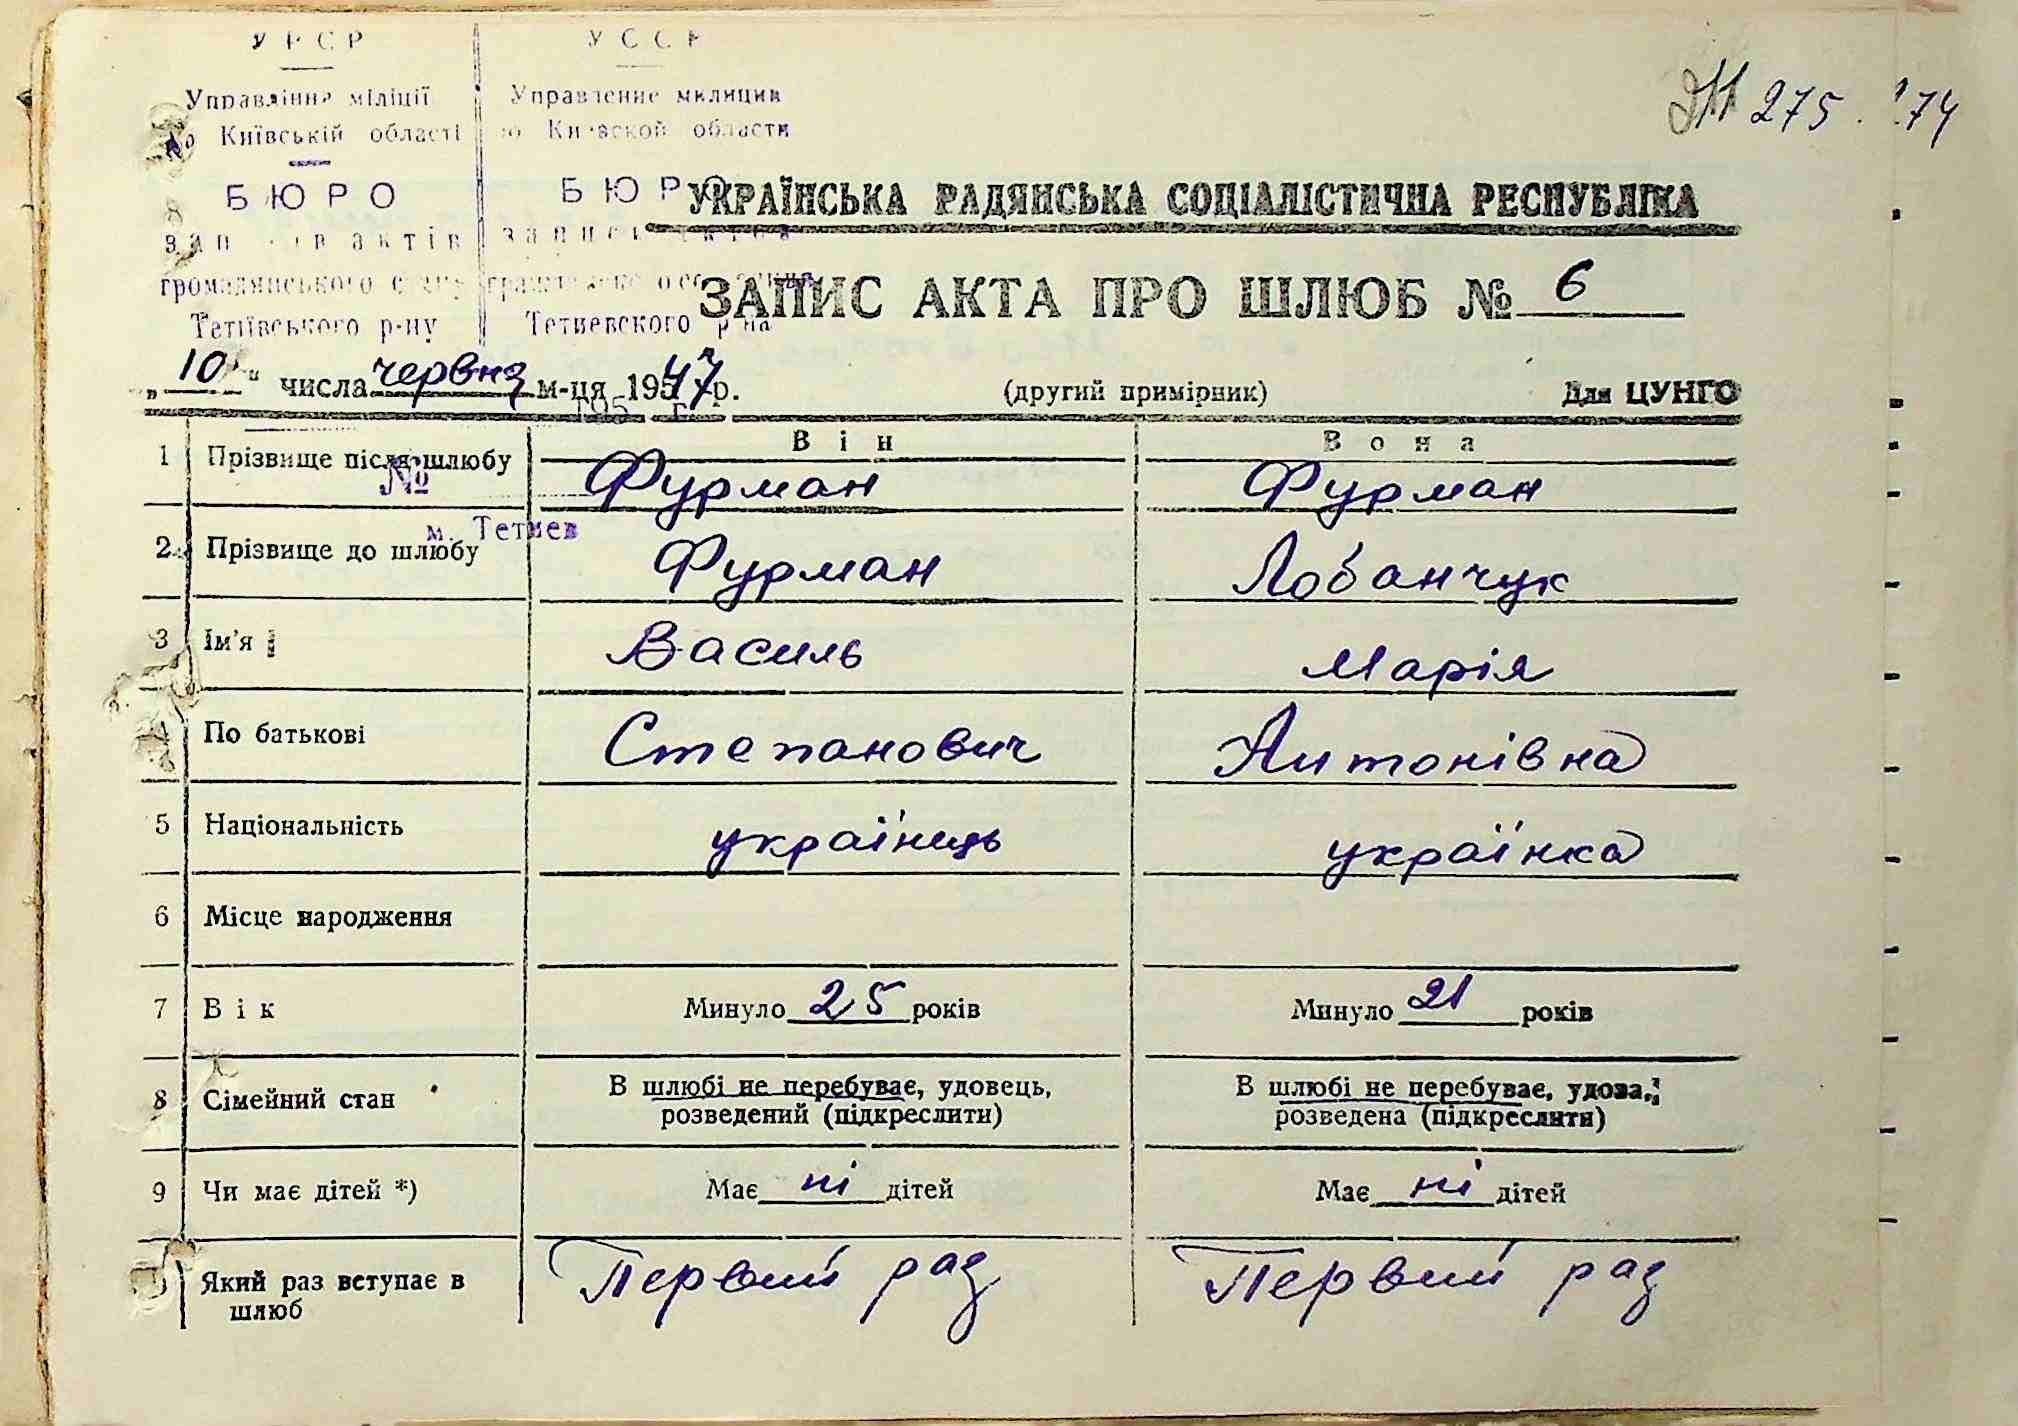 УРСР
Управління міліції
по Київській області
БЮРО
записів актів
громадянського стану
Тетіївського р-ну
УССР
Управление милиции
по Киевской области
БЮРО
записи актов
гражданского состояния
Тетиевского р-на
195 г.
№
м. Тетиев
275 74
УКРАЇНСЬКА РАДЯНСЬКА СОЦІАЛІСТИЧНА РЕСПУБЛІКА
ЗАПИС АКТА ПРО ШЛЮБ № 6
„10" числа червня м-ця 1947 р. (другий примірник) Для ЦУНГО
Він Вона
1 Прізвище після шлюбу Фурман Фурман
2 Прізвище до шлюбу Фурман Лобанчук
3 Ім'я Василь Марія
4 По батькові Степанович Антонівна
5 Національність українець українка
6 Місце народження
7 Вік Минуло 25 років Минуло 21 років
8 Сімейний стан В шлюбі не перебуває, удовець, В шлюбі не перебуває, удова,
розведений (підкреслити) розведена (підкреслити)
9 Чи має дітей *) Має ні дітей Має ні дітей
Який раз вступає в Первий раз Первий раз
шлюб